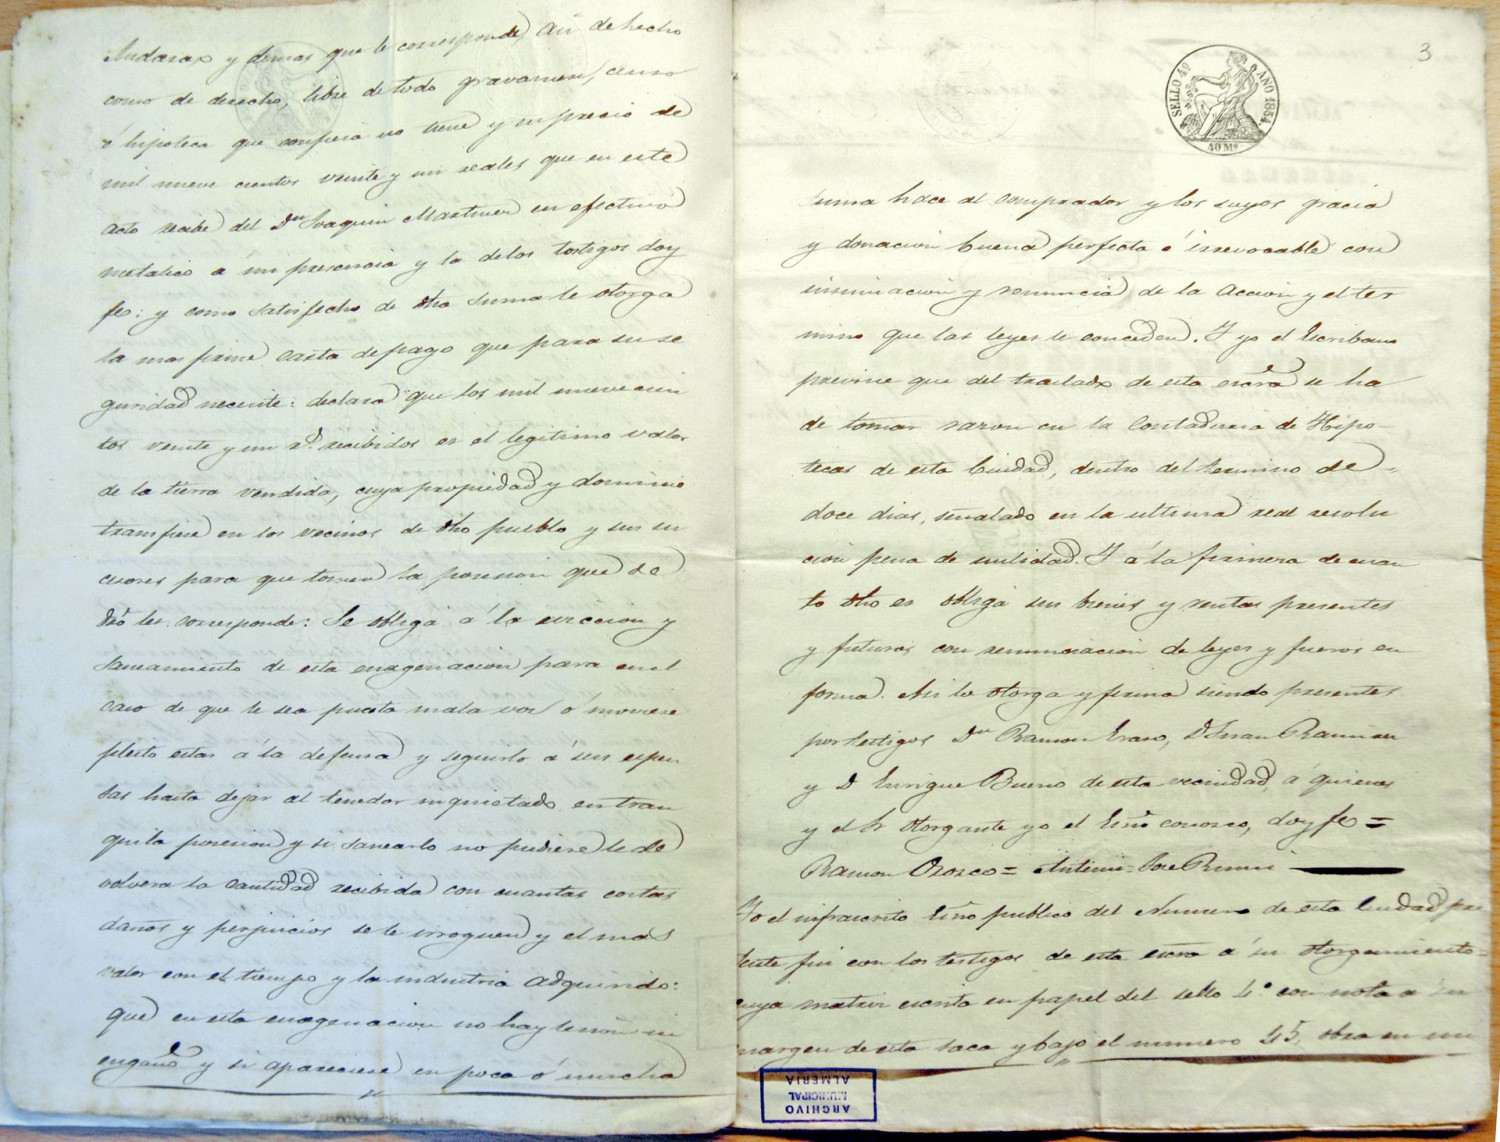 Andarax y demas que le corresponde, asi de hecho
como de derecho, libre de todo gravamen, censo
é hipoteca que confiesa no tiene y en precio de
mil nueve cientos veinte y un reales que en este
acto recibe del Dn Joaquin Martinez en efectivo
metalico a mi presencia y la delos testigos doy
fe: y como satisfecho de dha suma le otorga
la mas firme carta de pago que para su se
guridad necesite: declara que los mil nueve cien
tos veinte y un rs recibidos es el legitimo valor
de la tierra vendida, cuya propiedad y dominio
transfiere en los vecinos de dho pueblo y sus su
cesores para que tomen la posesion que de
dro les corresponde: Se obliga á la eviccion y
saneamiento de esta enagenacion para en el
caso de que le sea puesta mala voz ó moviese
pleito estar á la defensa y seguirlo á sus espen
sas hasta dejar al tenedor inquietado en tran
quila posesion y si sanearlo no pudiese le de
volvera la cantidad recibida con cuantas costas
daños y perjuicios se le irroguen y el mas
valor con el tiempo y la industria adquirido:
que en esta enagenacion no hay lesion ni
engaño y si apareciese en poca ó mucha
3
SELLO 4º AÑO 1854.
40 Ms
suma hace al comprador y los suyos gracia
y donacion buena perfecta é irrevocable con
insinuacion y renuncia de la accion y el ter
mino que las leyes le conceden. Y yo el Escribano
previne que del traslado de esta escra se ha
de tomar razon en la Contaduria de Hipo-
tecas de esta Ciudad, dentro del termino de
doce dias, señalado en la ultima real resolu
cion pena de nulidad. Y á la firmeza de cuan
to dho es obliga sus bienes y rentas presentes
y futuras con renunciacion de leyes y fueros en
forma. Asi lo otorga y firma siendo presentes
por testigos Dn Ramon Eraso, D. Juan Ramirez
y D Enrique Bueno de esta vecindad, á quienes
y el Sr otorgante yo el Esno conozco, doy fe =
Ramon Orozco = Antonio Jose
Yo el infrascrito Esno publico del Numero de esta Ciudad pre
sente fui con los testigos de esta escra á su otorgamiento
cuya matriz escrita en papel del sello 4º con nota á su
margen de esta saca y bajo el numero 45, obra en mi
ARCHIVO
MUNICIPAL
ALMERIA